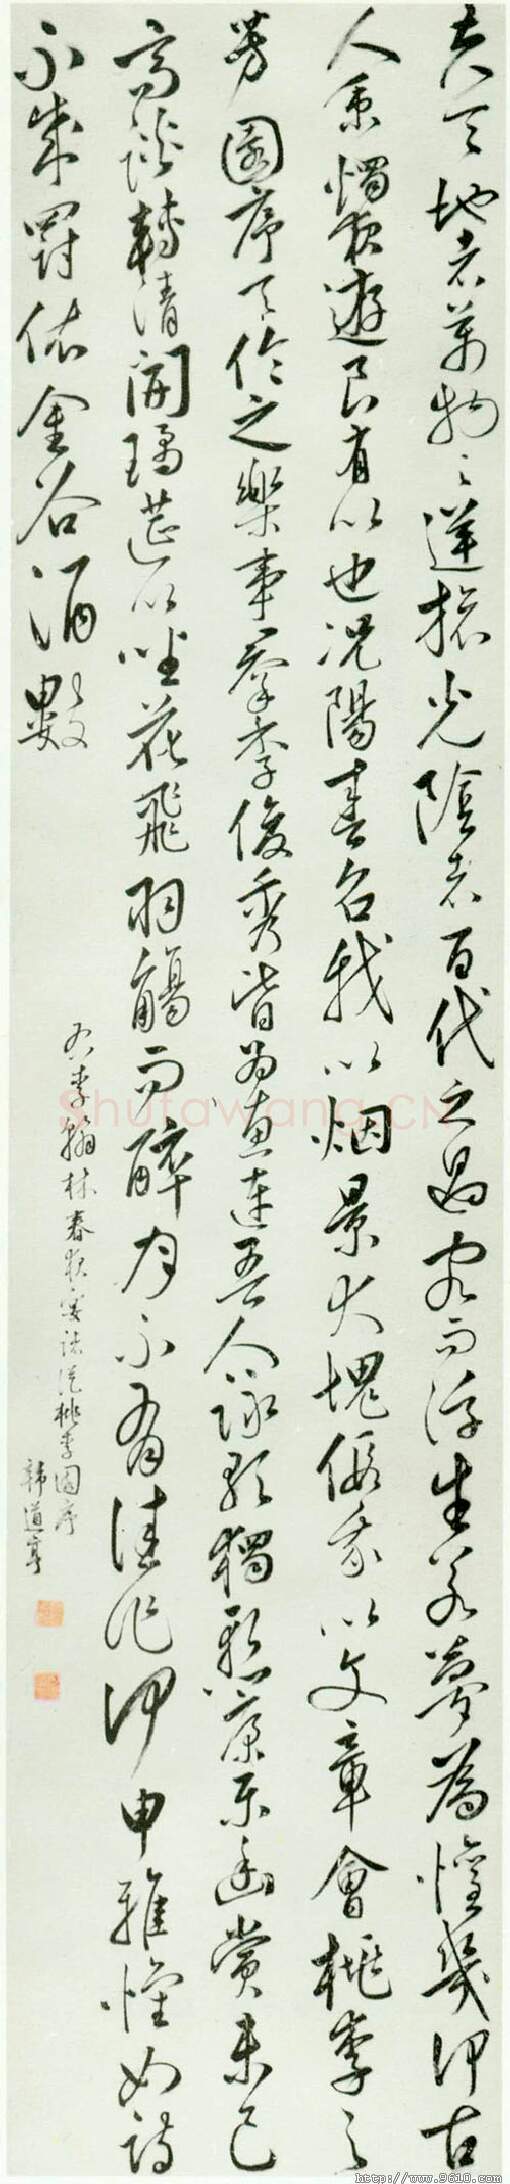 夫天地者萬物之逆旅光陰者百代之過客而浮生若夢為懽幾何古
人秉燭夜遊良有以也況陽春召我以烟景大塊假我以文章會桃李之
芳園序天倫之樂事羣季俊秀皆為惠連吾人詠歌獨慙康樂幽賞未已
高談轉清開瓊筵以坐花飛羽觴而醉月不有佳作何申雅懷如詩
不成罰依金谷酒數
右李翰林春夜宴諸從桃李園序
韓道亨
Shufawang.CN
http://www.9610.com